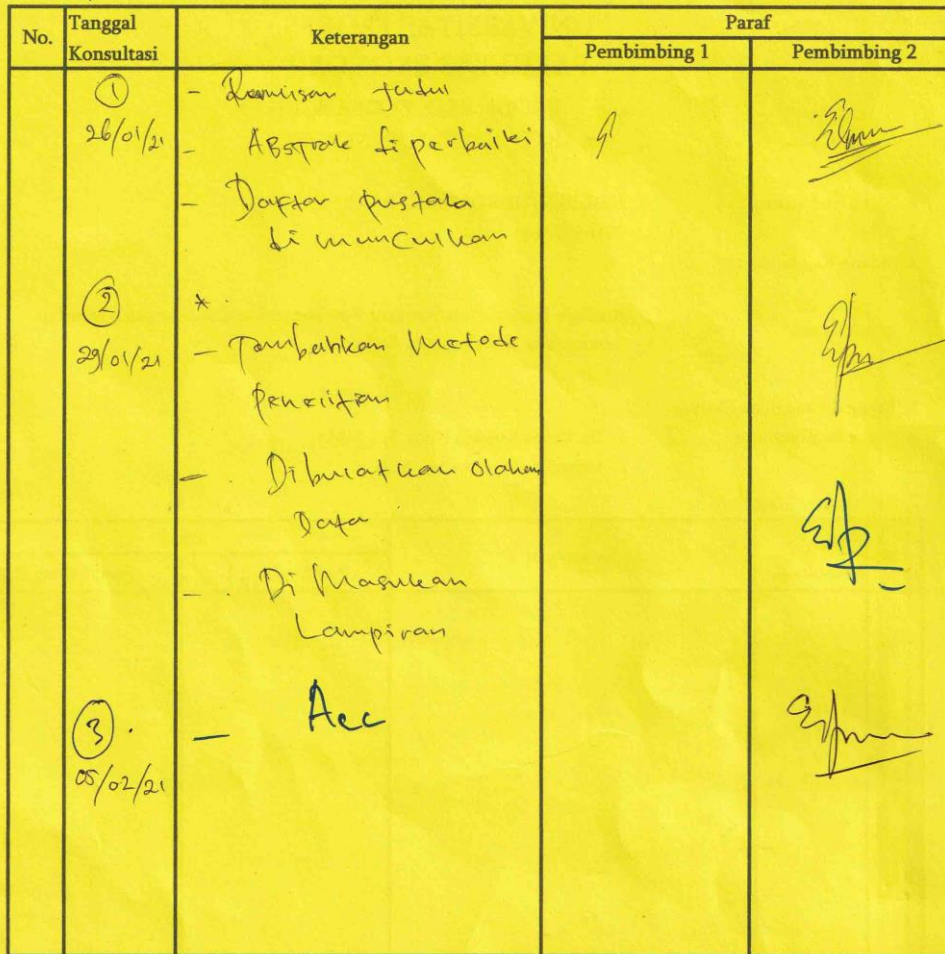 No.
Tanggal Konsultasi
Keterangan
Paraf
Pembimbing 1
Pembimbing 2
1
26/01/21
- judul
- ABstrak di perbaiki
- Daftar pustaka
di munculkan
2
29/01/21
*
- Tambahkan Metode
Penelitian
- Dibuatkan Olahan
Data
- Di Masukan
Lampiran
3.
05/02/21
- Acc